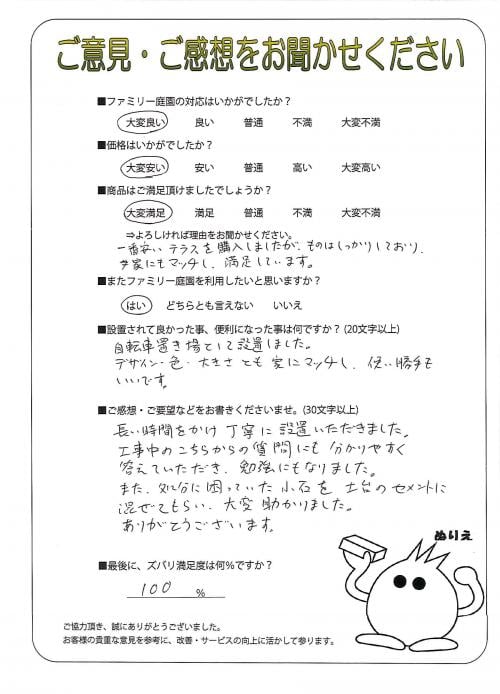 ご意見・ご感想をお聞かせください
■ファミリー庭園の対応はいかがでしたか?
大変良い 良い 普通 不満 大変不満
■価格はいかがでしたか?
大変安い 安い 普通 高い 大変高い
■商品はご満足頂けましたでしょうか?
大変満足 満足 普通 不満 大変不満
⇒よろしければ理由をお聞かせください。
一番安いテラスを購入しましたが、ものはしっかりしており、
家にもマッチし、満足しています。
■またファミリー庭園を利用したいと思いますか?
はい どちらとも言えない いいえ
■設置されて良かった事、便利になった事は何ですか?(20文字以上)
自転車置き場として設置しました。
デザイン・色・大きさとも家にマッチし、使い勝手も
いいです。
■ご感想・ご要望などをお書きくださいませ。(30文字以上)
長い時間をかけ丁寧に設置いただきました。
工事中のこちらからの質問にも分かりやすく
答えていただき、勉強にもなりました。
また、処分に困っていた小石を土台のセメントに
混ぜてもらい、大変助かりました。
ありがとうございます。
ぬりえ
■最後に、ズバリ満足度は何%ですか?
100 %
ご協力頂き、誠にありがとうございました。
お客様の貴重な意見を参考に、改善・サービスの向上に活かして参ります。